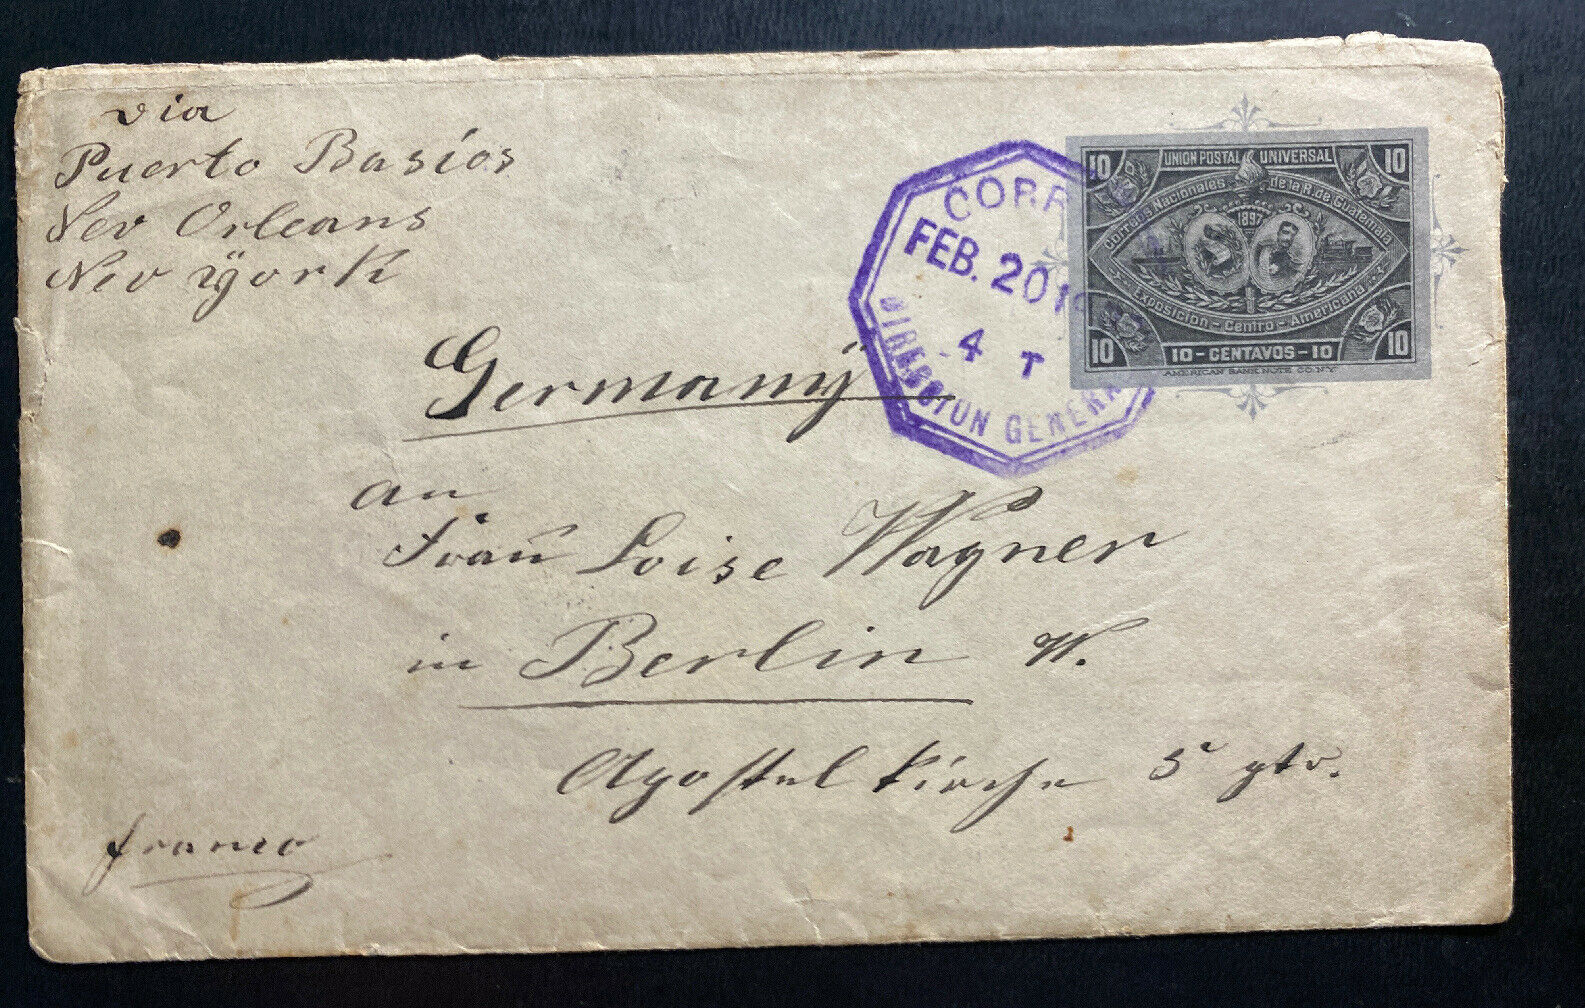 via
Puerto Basios
New Orleans
New York
Germany
an
Frau Loise Wagner
in Berlin W.
Apostel Kirche 5
franco
CORR
FEB. 20 1
4 T
DIRECCION GENERAL
10 UNION POSTAL UNIVERSAL 10
Correos Nacionales de la R. de Guatemala
1897
Exposicion - Centro - Americana
10 10 - CENTAVOS - 10 10
AMERICAN BANK NOTE CO. N.Y.